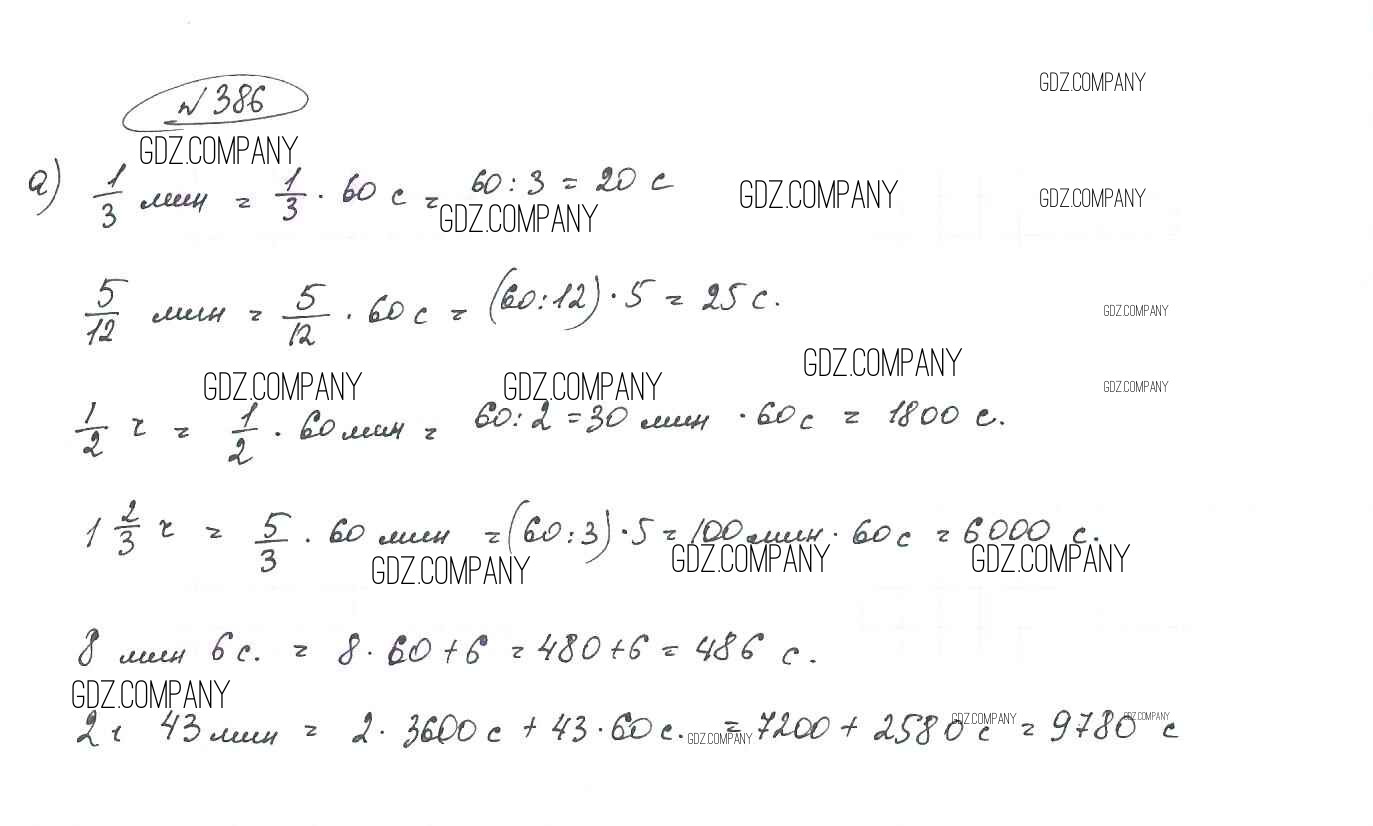 № 386
GDZ.COMPANY
GDZ.COMPANY
а) 1/3 мин = 1/3 · 60 с = 60 : 3 = 20 с
GDZ.COMPANY GDZ.COMPANY GDZ.COMPANY
5/12 мин = 5/12 · 60 с = (60 : 12) · 5 = 25 с.
GDZ.COMPANY
GDZ.COMPANY GDZ.COMPANY GDZ.COMPANY GDZ.COMPANY
1/2 ч = 1/2 · 60 мин = 60 : 2 = 30 мин · 60 с = 1800 с.
1 2/3 ч = 5/3 · 60 мин = (60 : 3) · 5 = 100 мин · 60 с = 6000 с.
GDZ.COMPANY GDZ.COMPANY GDZ.COMPANY
8 мин 6 с. = 8 · 60 + 6 = 480 + 6 = 486 с.
GDZ.COMPANY
2 ч 43 мин = 2 · 3600 с + 43 · 60 с. = 7200 + 2580 с = 9780 с
GDZ.COMPANY GDZ.COMPANY GDZ.COMPANY